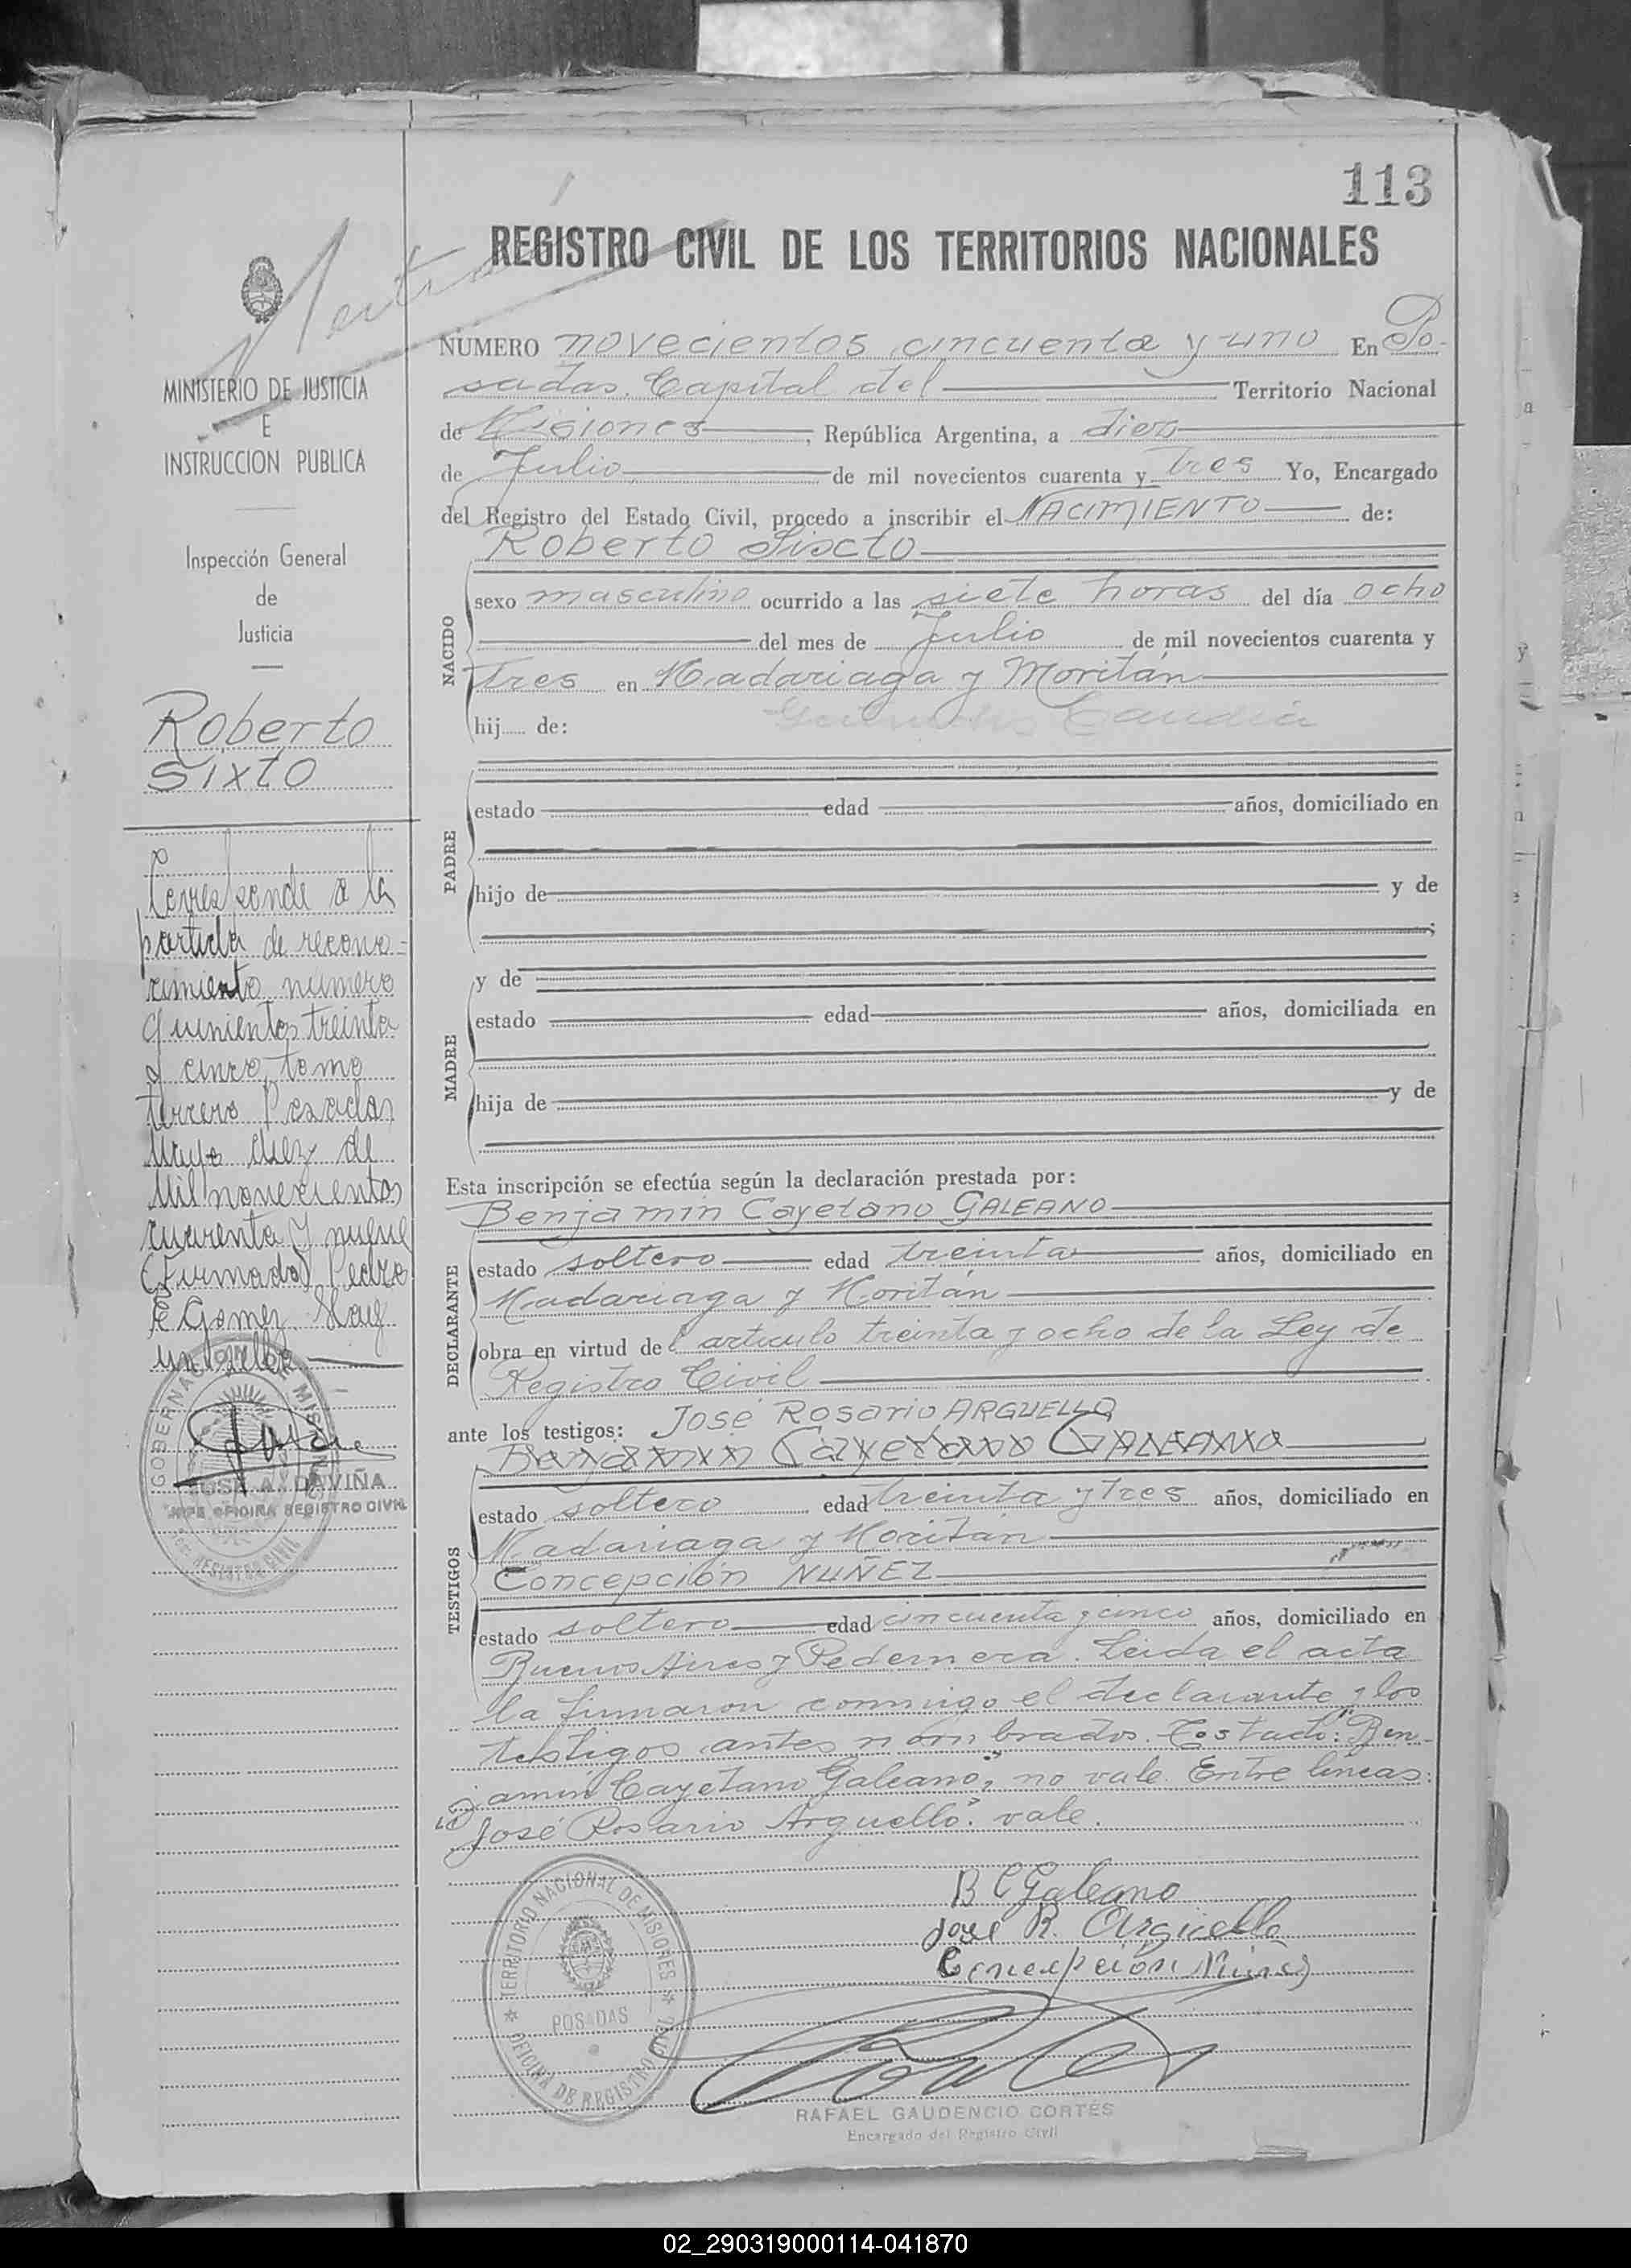 113
REGISTRO CIVIL DE LOS TERRITORIOS NACIONALES
MINISTERIO DE JUSTICIA
E
INSTRUCCION PUBLICA
Inspección General
de
Justicia
Roberto
Sixto
Corresponde a la
partida de recono-
cimiento numero
quinientos treinta
y cinco, tomo
tercero Posadas
Mayo diez de
Mil novecientos
cuarenta y nueve
(Firmado) Pedro
R Gomez. Hay
un sello
GOBERNACION DE MISIONES
JOSE A. DAVIÑA
JEFE OFICINA REGISTRO CIVIL
REGISTRO CIVIL
NUMERO novecientos cincuenta y uno En Po-
sadas. Capital del Territorio Nacional
de Misiones, República Argentina, a diez
de Julio de mil novecientos cuarenta y tres Yo, Encargado
del Registro del Estado Civil, procedo a inscribir el NACIMIENTO de:
Roberto Sixto
NACIDO
sexo masculino ocurrido a las siete horas del día ocho
del mes de Julio de mil novecientos cuarenta y
tres en Madariaga y Moritán
hij..... de:
PADRE
estado edad años, domiciliado en
hijo de y de
;
MADRE
y de
estado edad años, domiciliada en
hija de y de
Esta inscripción se efectúa según la declaración prestada por:
Benjamin Cayetano GALEANO
DECLARANTE
estado soltero edad treinta años, domiciliado en
Madariaga y Moritán
obra en virtud del articulo treinta y ocho de la Ley de
Registro Civil
ante los testigos: José Rosario ARGUELLO
Benjamin Cayetano GALEANO
TESTIGOS
estado soltero edad treinta y tres años, domiciliado en
Madariaga y Moritán
Concepción NUÑEZ
estado soltero edad cincuenta y cinco años, domiciliado en
Buenos Aires y Pedernera. Leida el acta
la firmaron conmigo el declarante y los
testigos antes nombrados. Testado: "Ben-
jamin Cayetano Galeano", no vale. Entre lineas:
"José Rosario Arguello". vale.
B C Galeano
José R. Arguello
Concepción Nuñez
TERRITORIO NACIONAL DE MISIONES
POSADAS
OFICINA DE REGISTRO CIVIL
RAFAEL GAUDENCIO CORTÉS
Encargado del Registro Civil
02_290319000114-041870